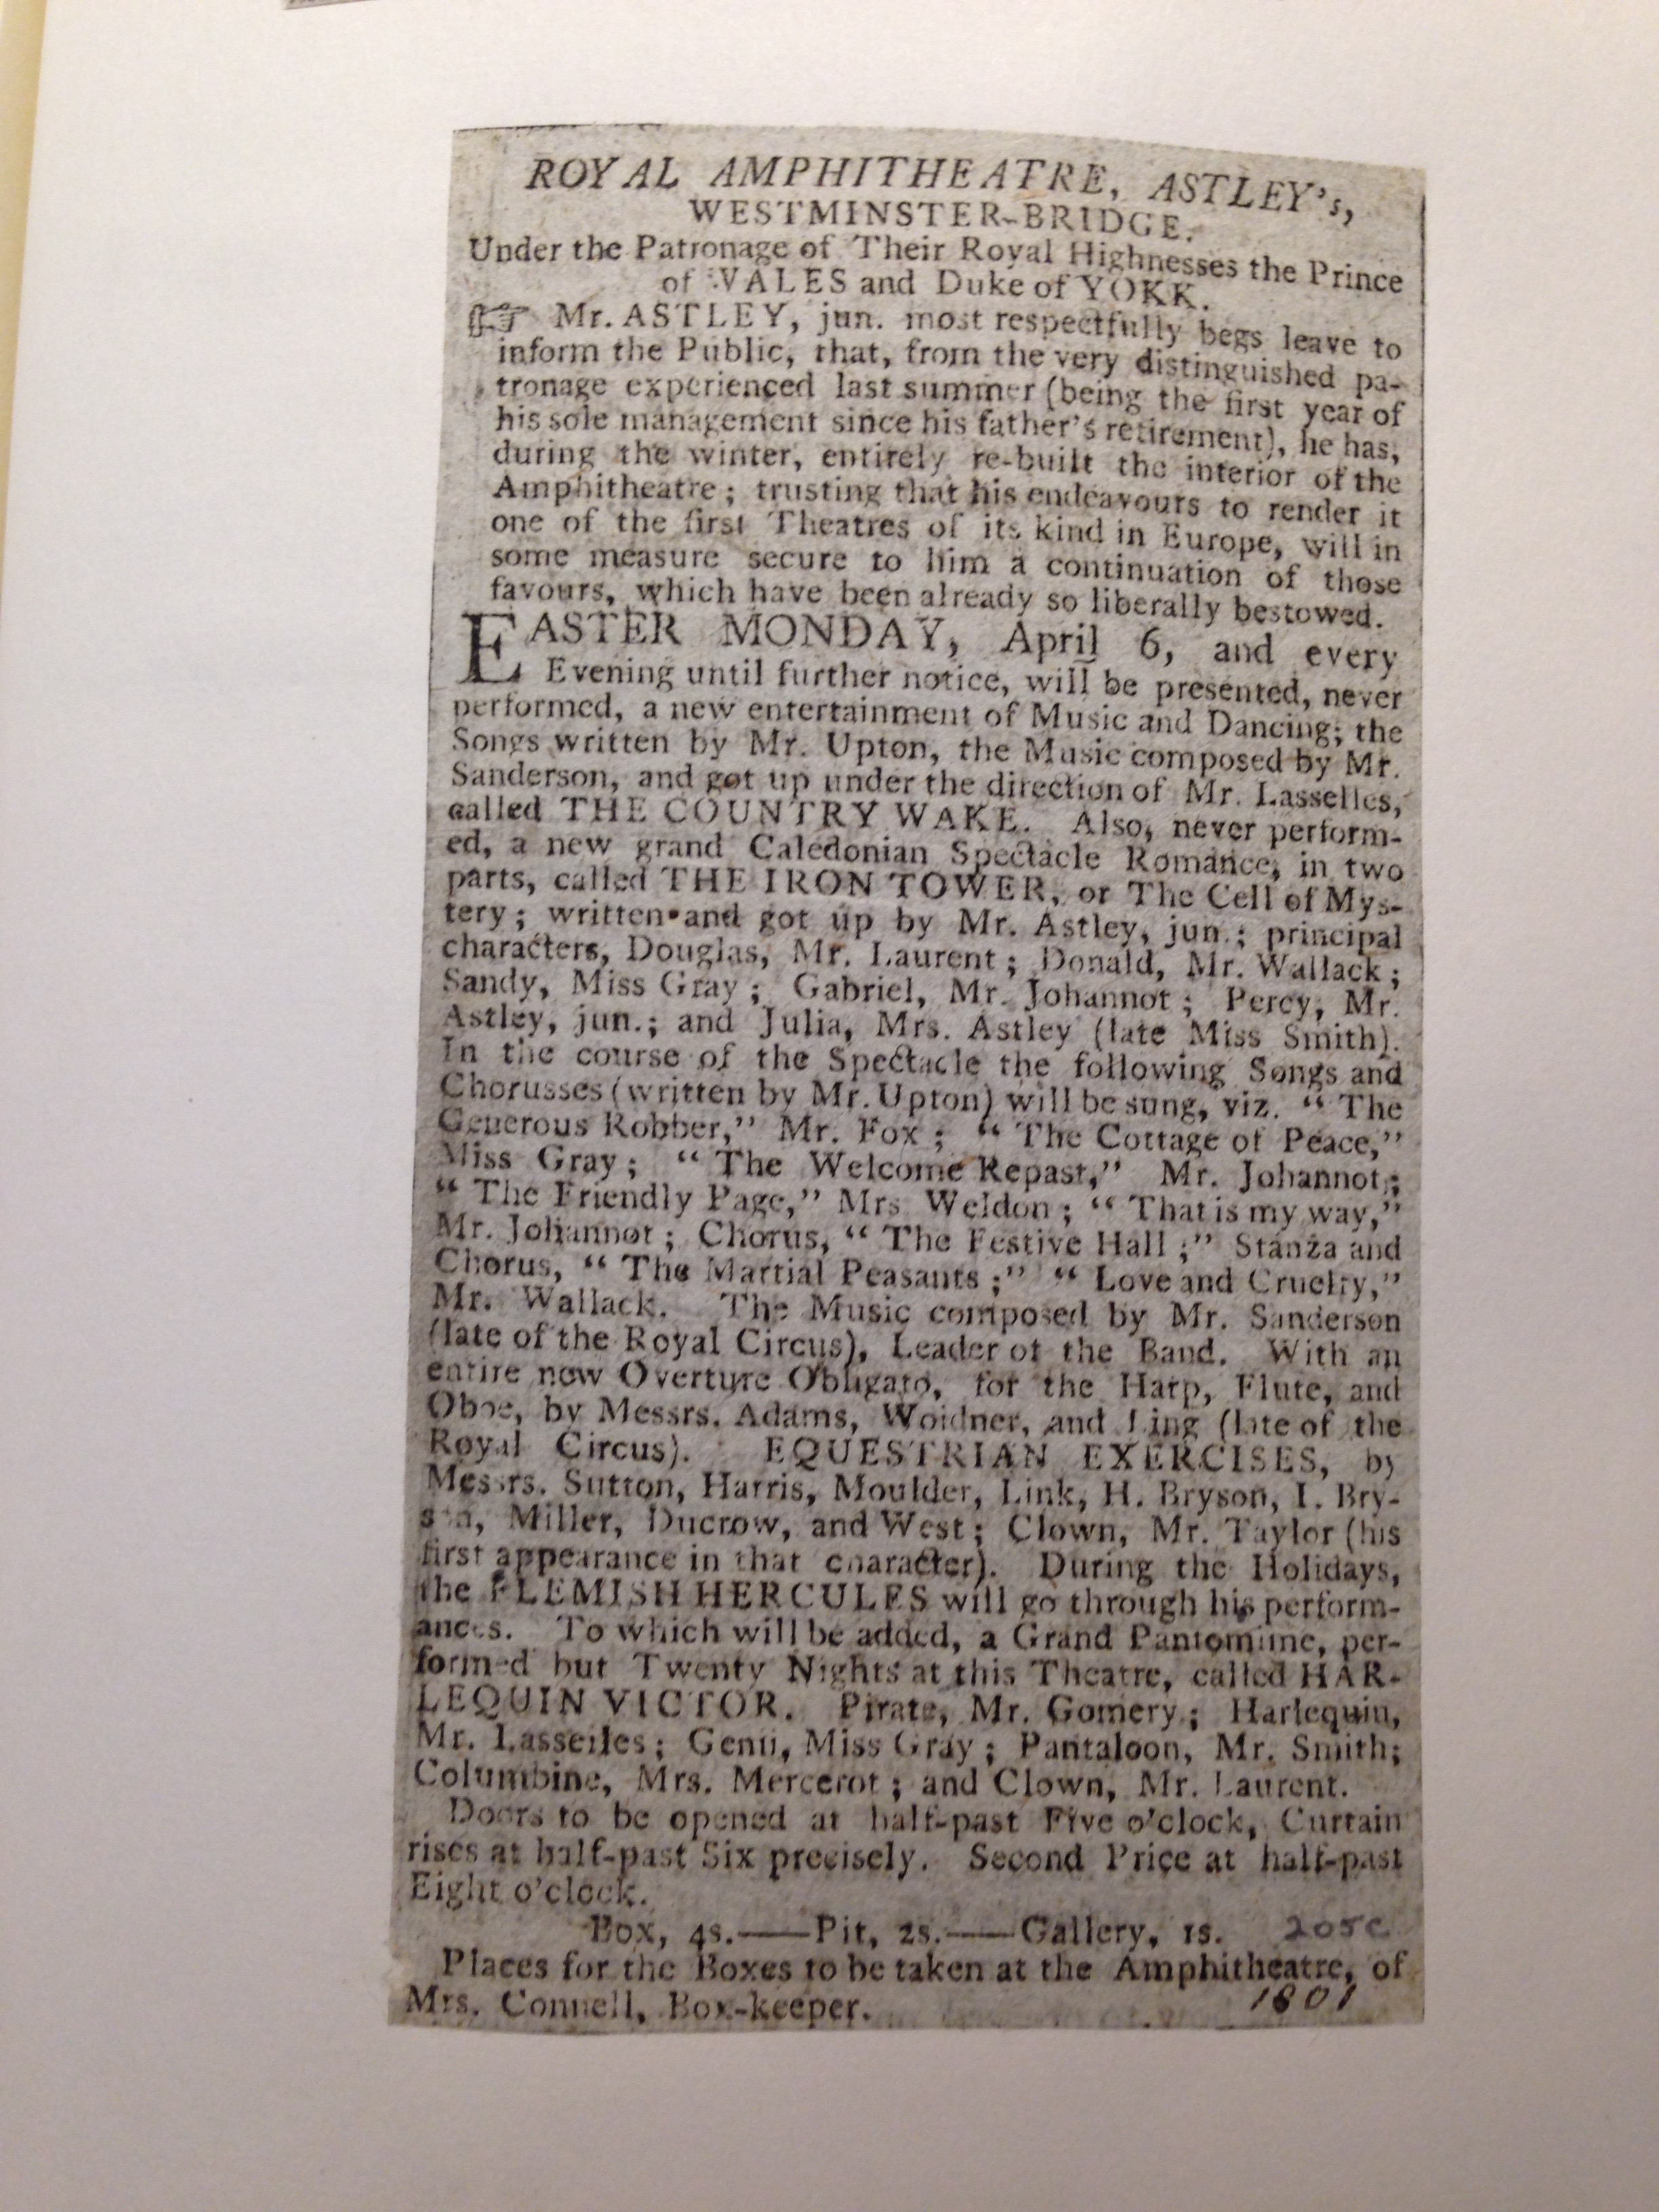 ROYAL AMPHITHEATRE, ASTLEY's,
WESTMINSTER-BRIDGE.
Under the Patronage of Their Royal Highnesses the Prince
of WALES and Duke of YOKK.
☞ Mr. ASTLEY, jun. most respectfully begs leave to
inform the Public, that, from the very distinguished pa-
tronage experienced last summer (being the first year of
his sole management since his father's retirement), he has,
during the winter, entirely re-built the interior of the
Amphitheatre; trusting that his endeavours to render it
one of the first Theatres of its kind in Europe, will in
some measure secure to him a continuation of those
favours, which have been already so liberally bestowed.
EASTER MONDAY, April 6, and every
Evening until further notice, will be presented, never
performed, a new entertainment of Music and Dancing; the
Songs written by Mr. Upton, the Music composed by Mr.
Sanderson, and got up under the direction of Mr. Lasselles,
called THE COUNTRY WAKE. Also, never perform-
ed, a new grand Caledonian Spectacle Romance, in two
parts, called THE IRON TOWER, or The Cell of Mys-
tery; written and got up by Mr. Astley, jun.; principal
characters, Douglas, Mr. Laurent; Donald, Mr. Wallack;
Sandy, Miss Gray; Gabriel, Mr. Johannot; Percy, Mr.
Astley, jun.; and Julia, Mrs. Astley (late Miss Smith).
In the course of the Spectacle the following Songs and
Chorusses (written by Mr. Upton) will be sung, viz. "The
Generous Robber," Mr. Fox; "The Cottage of Peace,"
Miss Gray; "The Welcome Repast," Mr. Johannot;
"The Friendly Page," Mrs Weldon; "That is my way,"
Mr. Johannot; Chorus, "The Festive Hall;" Stanza and
Chorus, "The Martial Peasants;" "Love and Cruelty,"
Mr. Wallack. The Music composed by Mr. Sanderson
(late of the Royal Circus), Leader of the Band. With an
entire new Overture Obligato, for the Harp, Flute, and
Oboe, by Messrs. Adams, Woidner, and Ling (late of the
Royal Circus). EQUESTRIAN EXERCISES, by
Messrs. Sutton, Harris, Moulder, Link, H. Bryson, I. Bry-
son, Miller, Ducrow, and West; Clown, Mr. Taylor (his
first appearance in that character). During the Holidays,
the FLEMISH HERCULES will go through his perform-
ances. To which will be added, a Grand Pantomime, per-
formed but Twenty Nights at this Theatre, called HAR-
LEQUIN VICTOR. Pirate, Mr. Gomery; Harlequin,
Mr. Lasselles; Genii, Miss Gray; Pantaloon, Mr. Smith;
Columbine, Mrs. Mercerot; and Clown, Mr. Laurent.
Doors to be opened at half-past Five o'clock, Curtain
rises at half-past Six precisely. Second Price at half-past
Eight o'clock.
Box, 4s.——Pit, 2s.——Gallery, 1s.
Places for the Boxes to be taken at the Amphitheatre, of
Mrs. Connell, Box-keeper. 1801